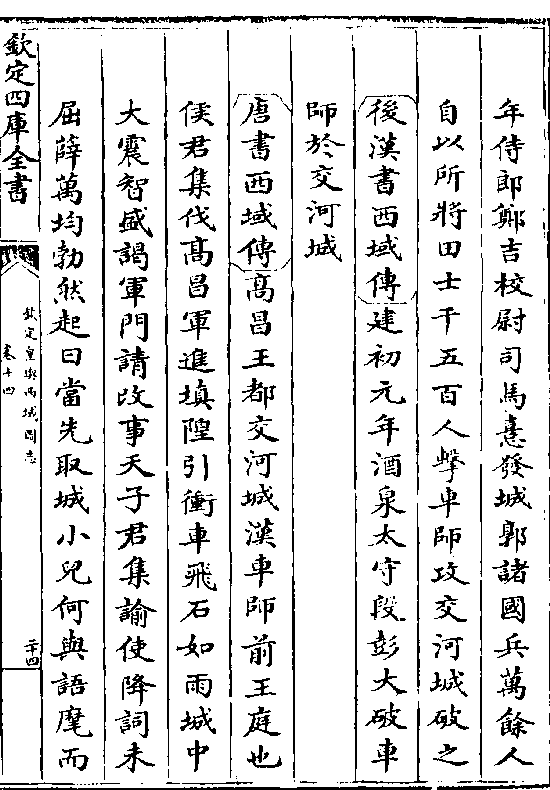 年侍郎鄭吉校尉司馬憙發城郭諸國兵萬餘人
自以所將田士千五百人擊車師攻交河城破之
後漢書西域傳建初元年酒泉太守段彭大破車
師於交河城
唐書西域傳高昌王都交河城漢車師前王庭也
侯君集伐高昌軍進填隍引衝車飛石如雨城中
大震智盛謁軍門請改事天子君集諭使降詞未
屈薛萬均勃然起曰當先取城小兒何與語麾而
欽定四庫全書
欽定皇輿西域圖志
卷十四
二十四